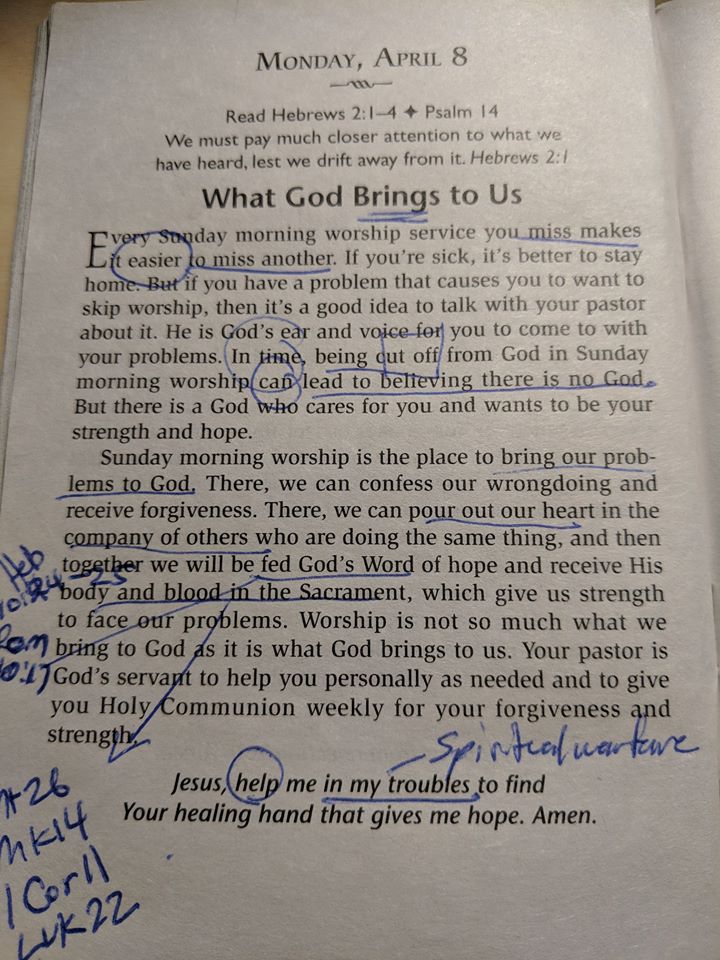 MONDAY, APRIL 8
Read Hebrews 2:1–4 ✦ Psalm 14
We must pay much closer attention to what we
have heard, lest we drift away from it. Hebrews 2:1
What God Brings to Us
Every Sunday morning worship service you miss makes
it easier to miss another. If you're sick, it's better to stay
home. But if you have a problem that causes you to want to
skip worship, then it's a good idea to talk with your pastor
about it. He is God's ear and voice for you to come to with
your problems. In time, being cut off from God in Sunday
morning worship can lead to believing there is no God.
But there is a God who cares for you and wants to be your
strength and hope.
Sunday morning worship is the place to bring our prob-
lems to God. There, we can confess our wrongdoing and
receive forgiveness. There, we can pour out our heart in the
company of others who are doing the same thing, and then
together we will be fed God's Word of hope and receive His
body and blood in the Sacrament, which give us strength
to face our problems. Worship is not so much what we
bring to God as it is what God brings to us. Your pastor is
God's servant to help you personally as needed and to give
you Holy Communion weekly for your forgiveness and
strength.
Heb
10:24-25
Rom
10:17
Spiritual warfare
Jesus, help me in my troubles to find
Your healing hand that gives me hope. Amen.
26
Mk14
1 Cor11
Luk22